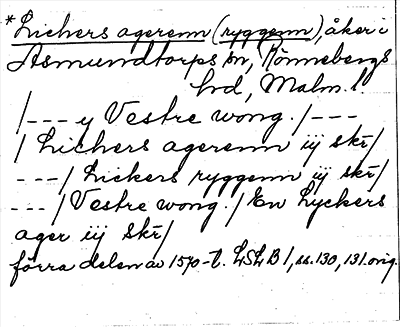 *Lichers agerenn (ryggenn), åker i
Asmundtorps sn, Rönnebergs
hd, Malm. l.
/--- y Vestre wong. /---
/ Lichers agerenn iij skr/
---/ Lickers ryggenn iij skr/
---/ Vestre wong. / En Lyckers
ager iij skr/
förra delen av 1570-t. LSLB 1, ss. 130, 131. orig.